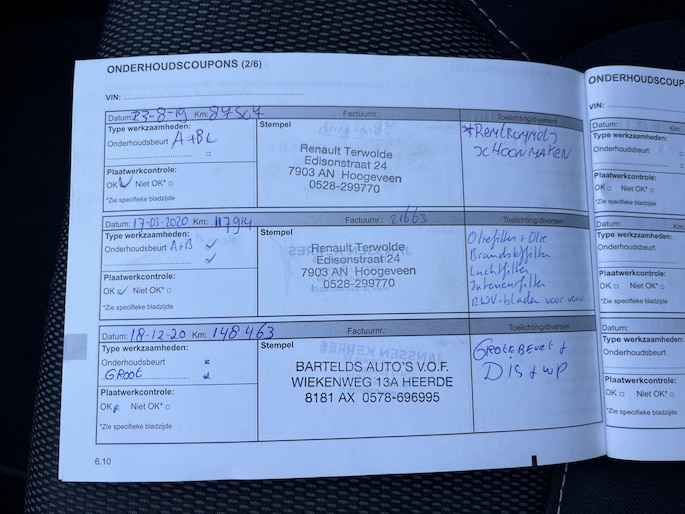 ONDERHOUDSCOUPONS (2/6)
VIN:
Datum: 23-8-19 Km: 87567 Factuurnr.: Toelichting/diversen:
Type werkzaamheden:
Onderhoudsbeurt A+B
Plaatwerkcontrole:
OK Niet OK*
*Zie specifieke bladzijde
Stempel
Renault Terwolde
Edisonstraat 24
7903 AN Hoogeveen
0528-299770
*Remtrommels
schoonmaken
Datum: 17-03-2020 Km: 117914 Factuurnr.: 21663 Toelichting/diversen
Type werkzaamheden:
Onderhoudsbeurt A+B
Plaatwerkcontrole:
OK Niet OK*
*Zie specifieke bladzijde
Stempel
Renault Terwolde
Edisonstraat 24
7903 AN Hoogeveen
0528-299770
Oliefilter + Olie
Brandstoffilter
Luchtfilter
Interieurfilter
RWV-bladen voor
Datum: 18-12-20 Km: 148463 Factuurnr.: Toelichting/diversen
Type werkzaamheden:
Onderhoudsbeurt
GROOT
Plaatwerkcontrole:
OK Niet OK*
*Zie specifieke bladzijde
Stempel
BARTELDS AUTO'S V.O.F.
WIEKENWEG 13A HEERDE
8181 AX 0578-696995
GROTE BEURT +
DIS + WP
6.10
ONDERHOUDSCOUP
VIN:
Datum:
Type werkzaamheden:
Onderhoudsbeurt
Plaatwerkcontrole:
OK Niet OK*
*Zie specifieke bladzijde
Datum: Km:
Type werkzaamheden:
Onderhoudsbeurt
Plaatwerkcontrole:
OK Niet OK*
*Zie specifieke bladzijde
Datum: Km:
Type werkzaamheden:
Onderhoudsbeurt
Plaatwerkcontrole:
OK Niet OK*
*Zie specifieke bladzijde